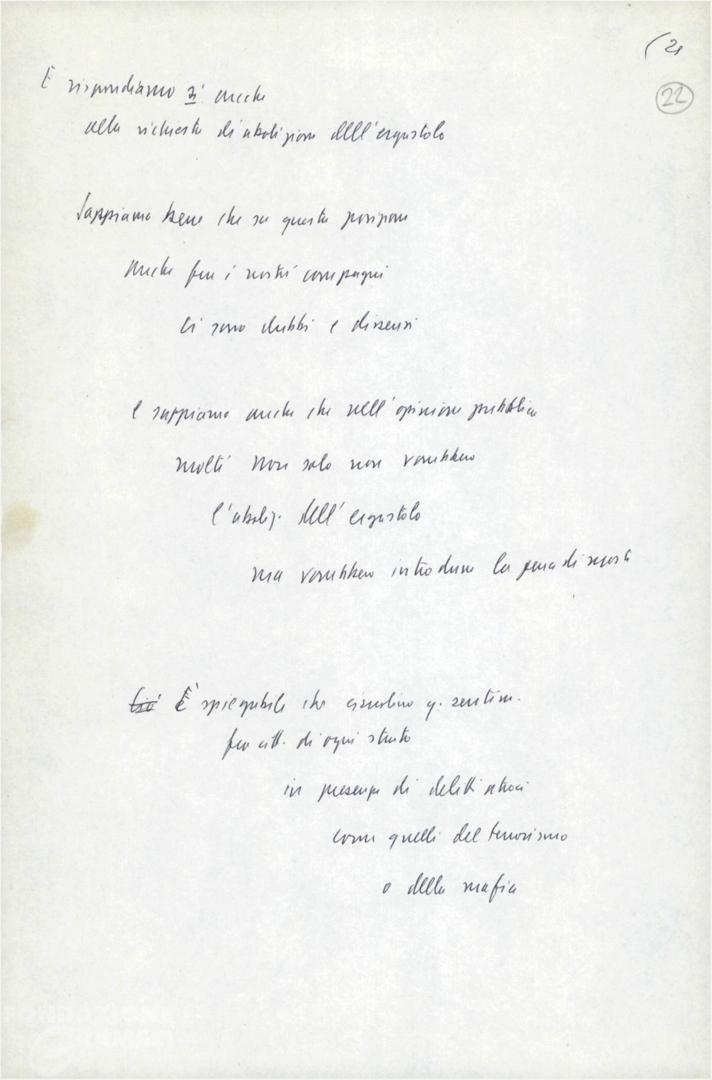 (21
22
E rispondiamo sì anche
alla richiesta di abolizione dell'ergastolo
Sappiamo bene che su questa posizione
anche fra i nostri compagni
ci sono dubbi e dissensi
e sappiamo anche che nell'opinione pubblica
molti non solo non vorrebbero
l'aboliz. dell'ergastolo
ma vorrebbero introdurre la pena di morte
È spiegabile che q. sentim.
fra citt. di ogni strato
in presenza di delitti atroci
come quelli del terrorismo
o della mafia